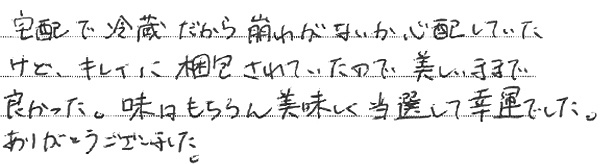 宅配で冷蔵だから崩れがないか心配していた
けど、キレイに梱包されていたので美しいままで
良かった。味はもちろん美味しく当選して幸運でした。
ありがとうございました。